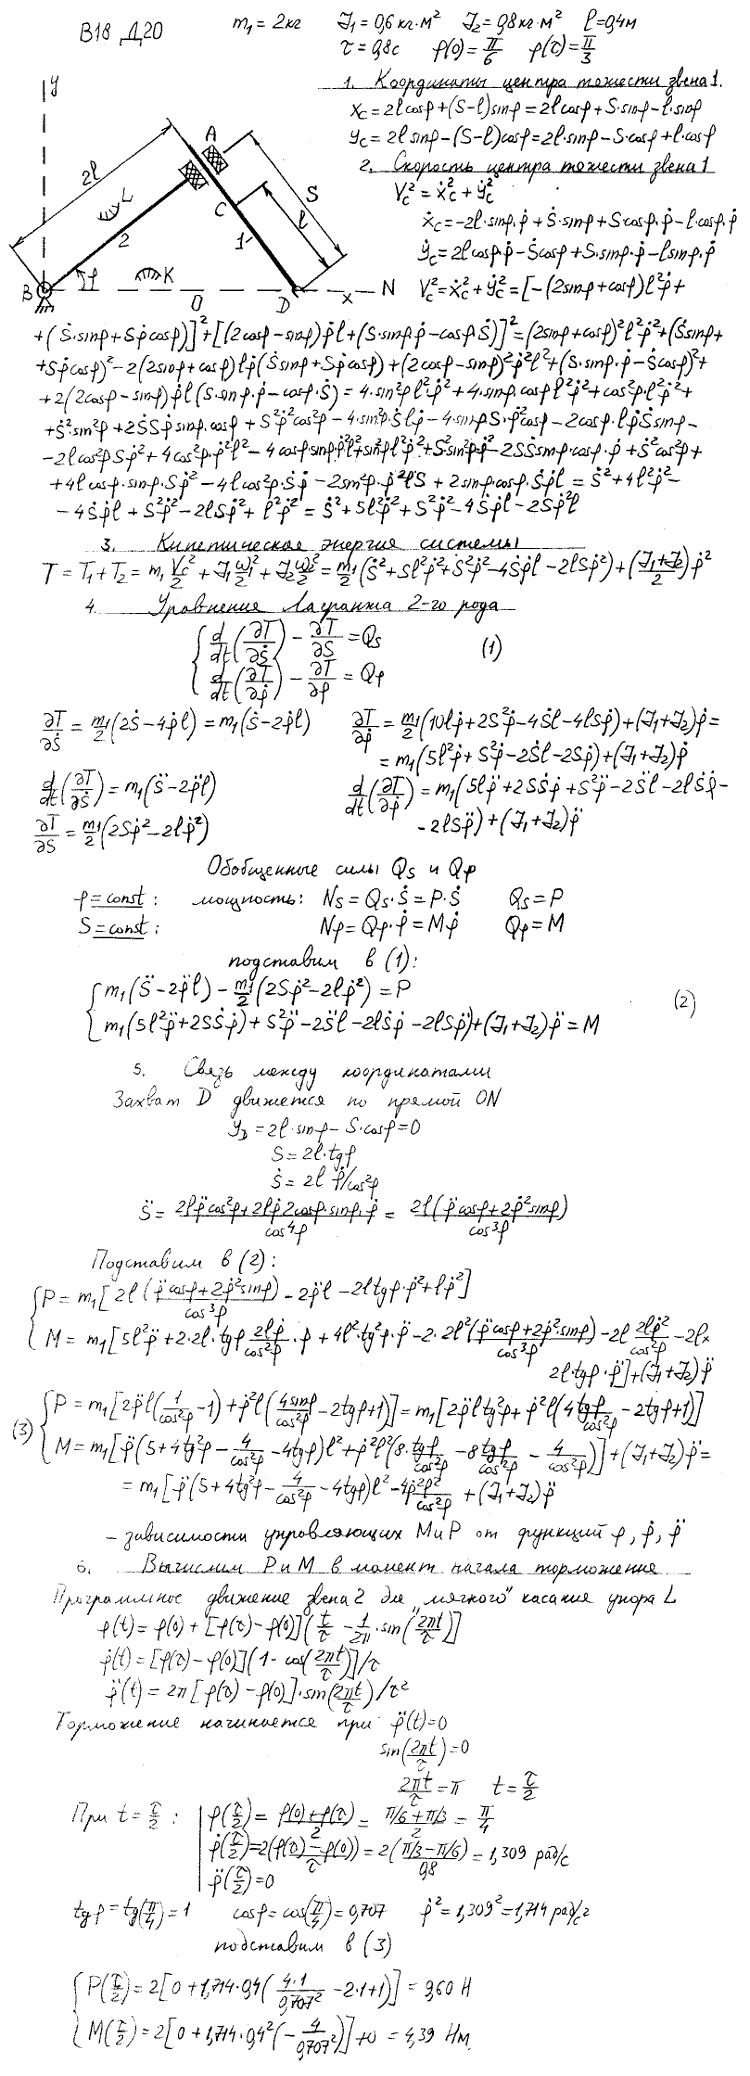 В18 Д20
m₁ = 2кг J₁ = 0,6 кг·м² J₂ = 0,8 кг·м² l = 0,4м
τ = 0,8с φ(0) = π/6 φ(τ) = π/3
1. Координаты центра тяжести звена 1.
x_C = 2l cosφ + (S-l) sinφ = 2l cosφ + S·sinφ - l·sinφ
y_C = 2l sinφ - (S-l) cosφ = 2l·sinφ - S·cosφ + l·cosφ
2. Скорость центра тяжести звена 1
V_C² = ẋ_C² + ẏ_C²
ẋ_C = -2l·sinφ·φ̇ + Ṡ·sinφ + S·cosφ·φ̇ - l·cosφ·φ̇
ẏ_C = 2l cosφ·φ̇ - Ṡcosφ + S·sinφ·φ̇ - l sinφ·φ̇
y
2l
A
S
L
C
l
2
1
φ
K
B
O
D
x
N
V_C² = ẋ_C² + ẏ_C² = [-(2sinφ + cosφ)l²φ̇ +
+ (Ṡ·sinφ + Sφ̇ cosφ)]² + [(2cosφ - sinφ)φ̇l + (S·sinφ·φ̇ - cosφ·Ṡ)]² = (2sinφ + cosφ)² l²φ̇² + (Ṡsinφ +
+ Sφ̇cosφ)² - 2(2sinφ + cosφ)lφ̇(Ṡsinφ + Sφ̇cosφ) + (2cosφ - sinφ)²φ̇²l² + (S·sinφ·φ̇ - Ṡcosφ)² +
+ 2(2cosφ - sinφ)φ̇l(S·sinφ·φ̇ - cosφ·Ṡ) = 4·sin²φ l²φ̇² + 4·sinφ·cosφ l²φ̇² + cos²φ·l²φ̇² +
+ Ṡ²·sin²φ + 2ṠSφ̇ sinφ·cosφ + S²φ̇²cos²φ - 4·sin²φ·Ṡlφ̇ - 4·sinφS·φ̇²cosφ - 2cosφ·lφ̇Ṡsinφ -
- 2lcos²φSφ̇² + 4cos²φ·φ̇²l² - 4cosφ·sinφφ̇²l² + sin²φl²φ̇² + S²sin²φ·φ̇² - 2SṠsinφ·cosφ·φ̇ + Ṡ²cos²φ +
+ 4l cosφ·sinφ·Sφ̇² - 4l cos²φ·Ṡφ̇ - 2sin²φ·φ̇²lS + 2sinφ·cosφ·Ṡφ̇l = Ṡ² + 4l²φ̇² -
- 4Ṡφ̇l + S²φ̇² - 2lSφ̇² + l²φ̇² = Ṡ² + 5l²φ̇² + S²φ̇² - 4Ṡφ̇l - 2Sφ̇²l
3. Кинетическая энергия системы
T = T₁ + T₂ = m₁V_C²/2 + J₁ω²/2 + J₂ω²/2 = m₁/2(Ṡ² + 5l²φ̇² + S²φ̇² - 4Ṡφ̇l - 2lSφ̇²) + ((J₁+J₂)/2)φ̇²
4. Уравнения Лагранжа 2-го рода
{ d/dt(∂T/∂Ṡ) - ∂T/∂S = Q_S (1)
{ d/dt(∂T/∂φ̇) - ∂T/∂φ = Q_φ
∂T/∂Ṡ = m₁/2(2Ṡ - 4φ̇l) = m₁(Ṡ - 2φ̇l) ∂T/∂φ̇ = m₁/2(10l²φ̇ + 2S²φ̇ - 4Ṡl - 4lSφ̇) + (J₁+J₂)φ̇ =
= m₁(5l²φ̇ + S²φ̇ - 2Ṡl - 2Sφ̇) + (J₁+J₂)φ̇
d/dt(∂T/∂Ṡ) = m₁(S̈ - 2φ̈l) d/dt(∂T/∂φ̇) = m₁(5lφ̈ + 2SṠφ̇ + S²φ̈ - 2S̈l - 2lṠφ̇ -
∂T/∂S = m₁/2(2Sφ̇² - 2lφ̇²) - 2lSφ̈) + (J₁+J₂)φ̈
Обобщенные силы Q_S и Q_φ
φ = const: мощность: N_S = Q_S·Ṡ = P·Ṡ Q_S = P
S = const: N_φ = Q_φ·φ̇ = Mφ̇ Q_φ = M
подставим в (1):
{ m₁(S̈ - 2φ̈l) - m₁/2(2Sφ̇² - 2lφ̇²) = P (2)
{ m₁(5l²φ̈ + 2SṠφ̇) + S²φ̈ - 2S̈l - 2lṠφ̇ - 2lSφ̈) + (J₁+J₂)φ̈ = M
5. Связь между координатами
Захват D движется по прямой ON
y_D = 2l·sinφ - S·cosφ = 0
S = 2l·tgφ
Ṡ = 2l φ̇/cos²φ
S̈ = (2lφ̈cos²φ + 2lφ̇2cosφ·sinφ·φ̇)/cos⁴φ = 2l(φ̈cosφ + 2φ̇²sinφ)/cos³φ
Подставим в (2):
{ P = m₁[2l(φ̈cosφ + 2φ̇²sinφ)/cos³φ - 2φ̈l - 2ltgφ·φ̇² + lφ̇²]
{ M = m₁[5l²φ̈ + 2·2l·tgφ 2lφ̇/cos²φ·φ̇ + 4l²·tg²φ·φ̈ - 2·2l²(φ̈cosφ + 2φ̇²·sinφ)/cos³φ - 2l 2lφ̇²/cos²φ - 2l×
2l·tgφ·φ̈] + (J₁+J₂)φ̈
(3) { P = m₁[2φ̈l(1/cos²φ - 1) + φ̇²l(4sinφ/cos²φ - 2tgφ + 1)] = m₁[2φ̈l tg²φ + φ̇²l(4tgφ/cos²φ - 2tgφ + 1)]
{ M = m₁[φ̈(5 + 4tg²φ - 4/cos²φ - 4tgφ)l² + φ̇²l²(8·tgφ/cos²φ - 8tgφ/cos²φ - 4/cos²φ)] + (J₁+J₂)φ̈ =
= m₁[φ̈(5 + 4tg²φ - 4/cos²φ - 4tgφ)l² - 4φ̇²l²/cos²φ + (J₁+J₂)φ̈
- зависимости управляющих М и Р от функций φ, φ̇, φ̈
6. Вычислим Р и М в момент начала торможения
Программное движение звена 2 для „мягкого" касания упора L
φ(t) = φ(0) + [φ(τ) - φ(0)](t/τ - 1/2π·sin(2πt/τ)]
φ̇(t) = [φ(τ) - φ(0)](1 - cos(2πt/τ)]/τ
φ̈(t) = 2π[φ(τ) - φ(0)]·sin(2πt/τ)/τ²
Торможение начинается при φ̈(t) = 0
sin(2πt/τ) = 0
2πt/τ = π t = τ/2
При t = τ/2: φ(τ/2) = (φ(0) + φ(τ))/2 = (π/6 + π/3)/2 = π/4
φ̇(τ/2) = 2(φ(τ) - φ(0))/τ = 2(π/3 - π/6)/0,8 = 1,309 рад/с
φ̈(τ/2) = 0
tgφ = tg(π/4) = 1 cosφ = cos(π/4) = 0,707 φ̇² = 1,309² = 1,714 рад/с²
подставим в (3)
{ P(τ/2) = 2[0 + 1,714·0,4(4·1/0,707² - 2·1 + 1)] = 9,60 Н
{ M(τ/2) = 2[0 + 1,714·0,4²(-4/0,707²)] + 0 = 4,39 Нм